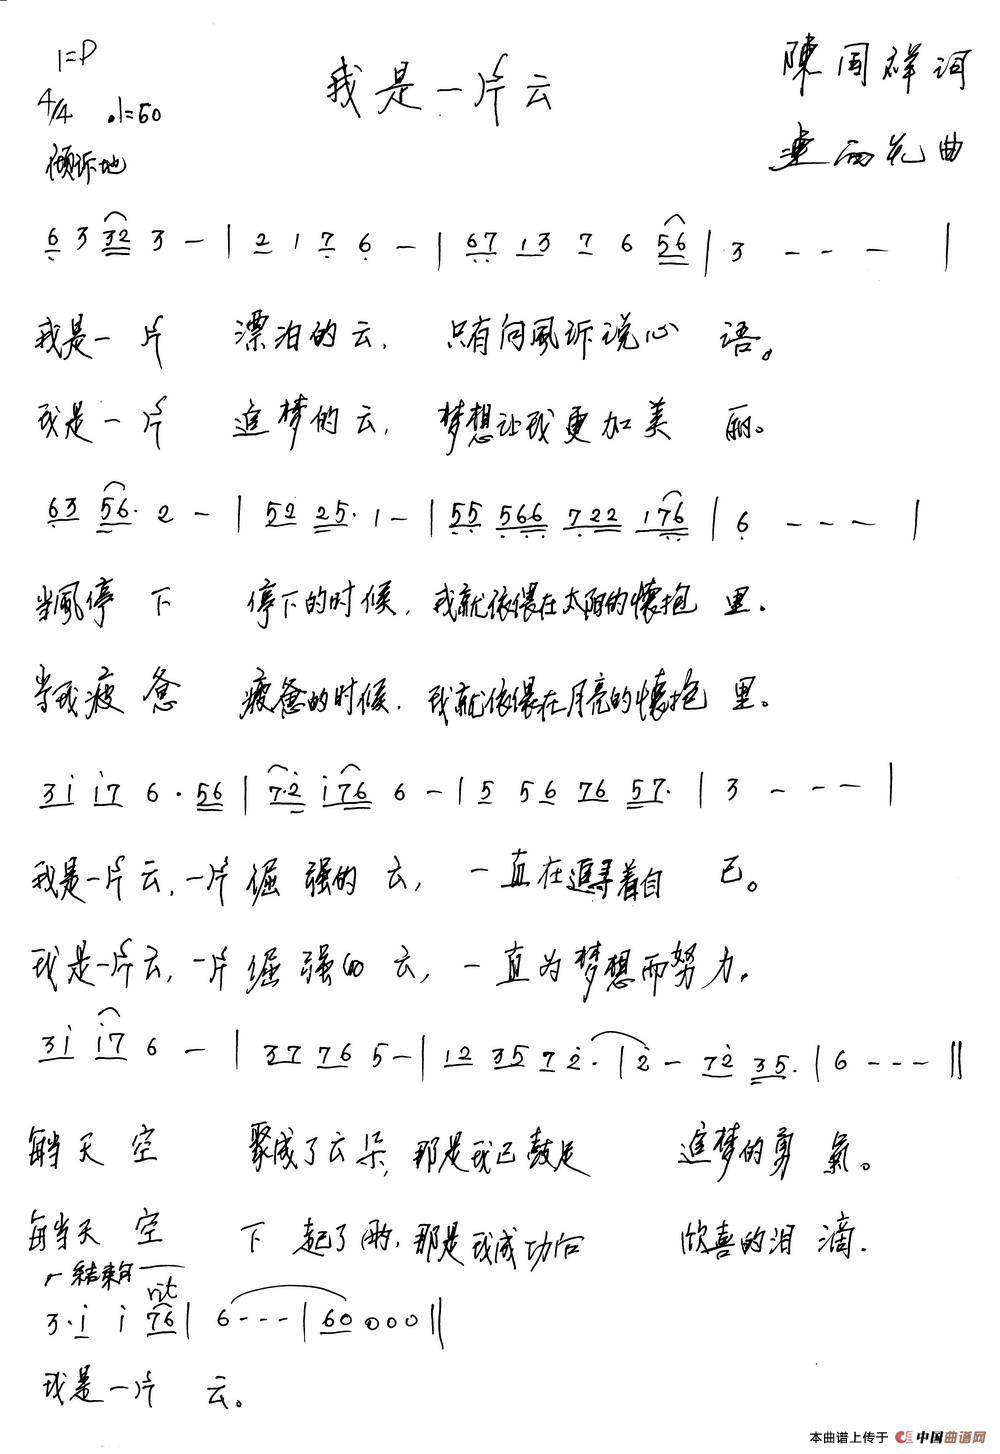 1=D
我是一片云
陳国祥词
4/4 ♩=50
雨花曲
倾诉地
6 3 32 3 - | 2 1 7 6 - | 67 13 7 6 56 | 3 - - - |
我是一片 漂泊的云, 只有向風诉说心 语。
我是一片 追梦的云, 梦想让我更加美 丽。
63 56· 2 - | 52 25· 1 - | 55 566 722 176 | 6 - - - |
当風停 下 停下的时候, 我就依偎在太阳的懷抱 里。
当我疲 惫 疲惫的时候, 我就依偎在月亮的懷抱 里。
3i i7 6 · 56 | 7·2 i76 6 - | 5 5 6 76 57· | 3 - - - |
我是一片云, 一片倔 强的 云, 一直在追寻着自 己。
我是一片云, 一片倔 强的 云, 一直为梦想而努力。
3i i7 6 - | 37 76 5 - | 12 35 7 2· | 2 - 72 35· | 6 - - - ||
每当天 空 聚成了云朵, 那是我已鼓足 追梦的勇 氣。
每当天 空 下 起了雨, 那是我成功后 欣喜的泪 滴.
结束句
rit
3·i i 76 | 6 - - - | 60 0 0 0 ||
我是一片 云。
本曲谱上传于 中国曲谱网